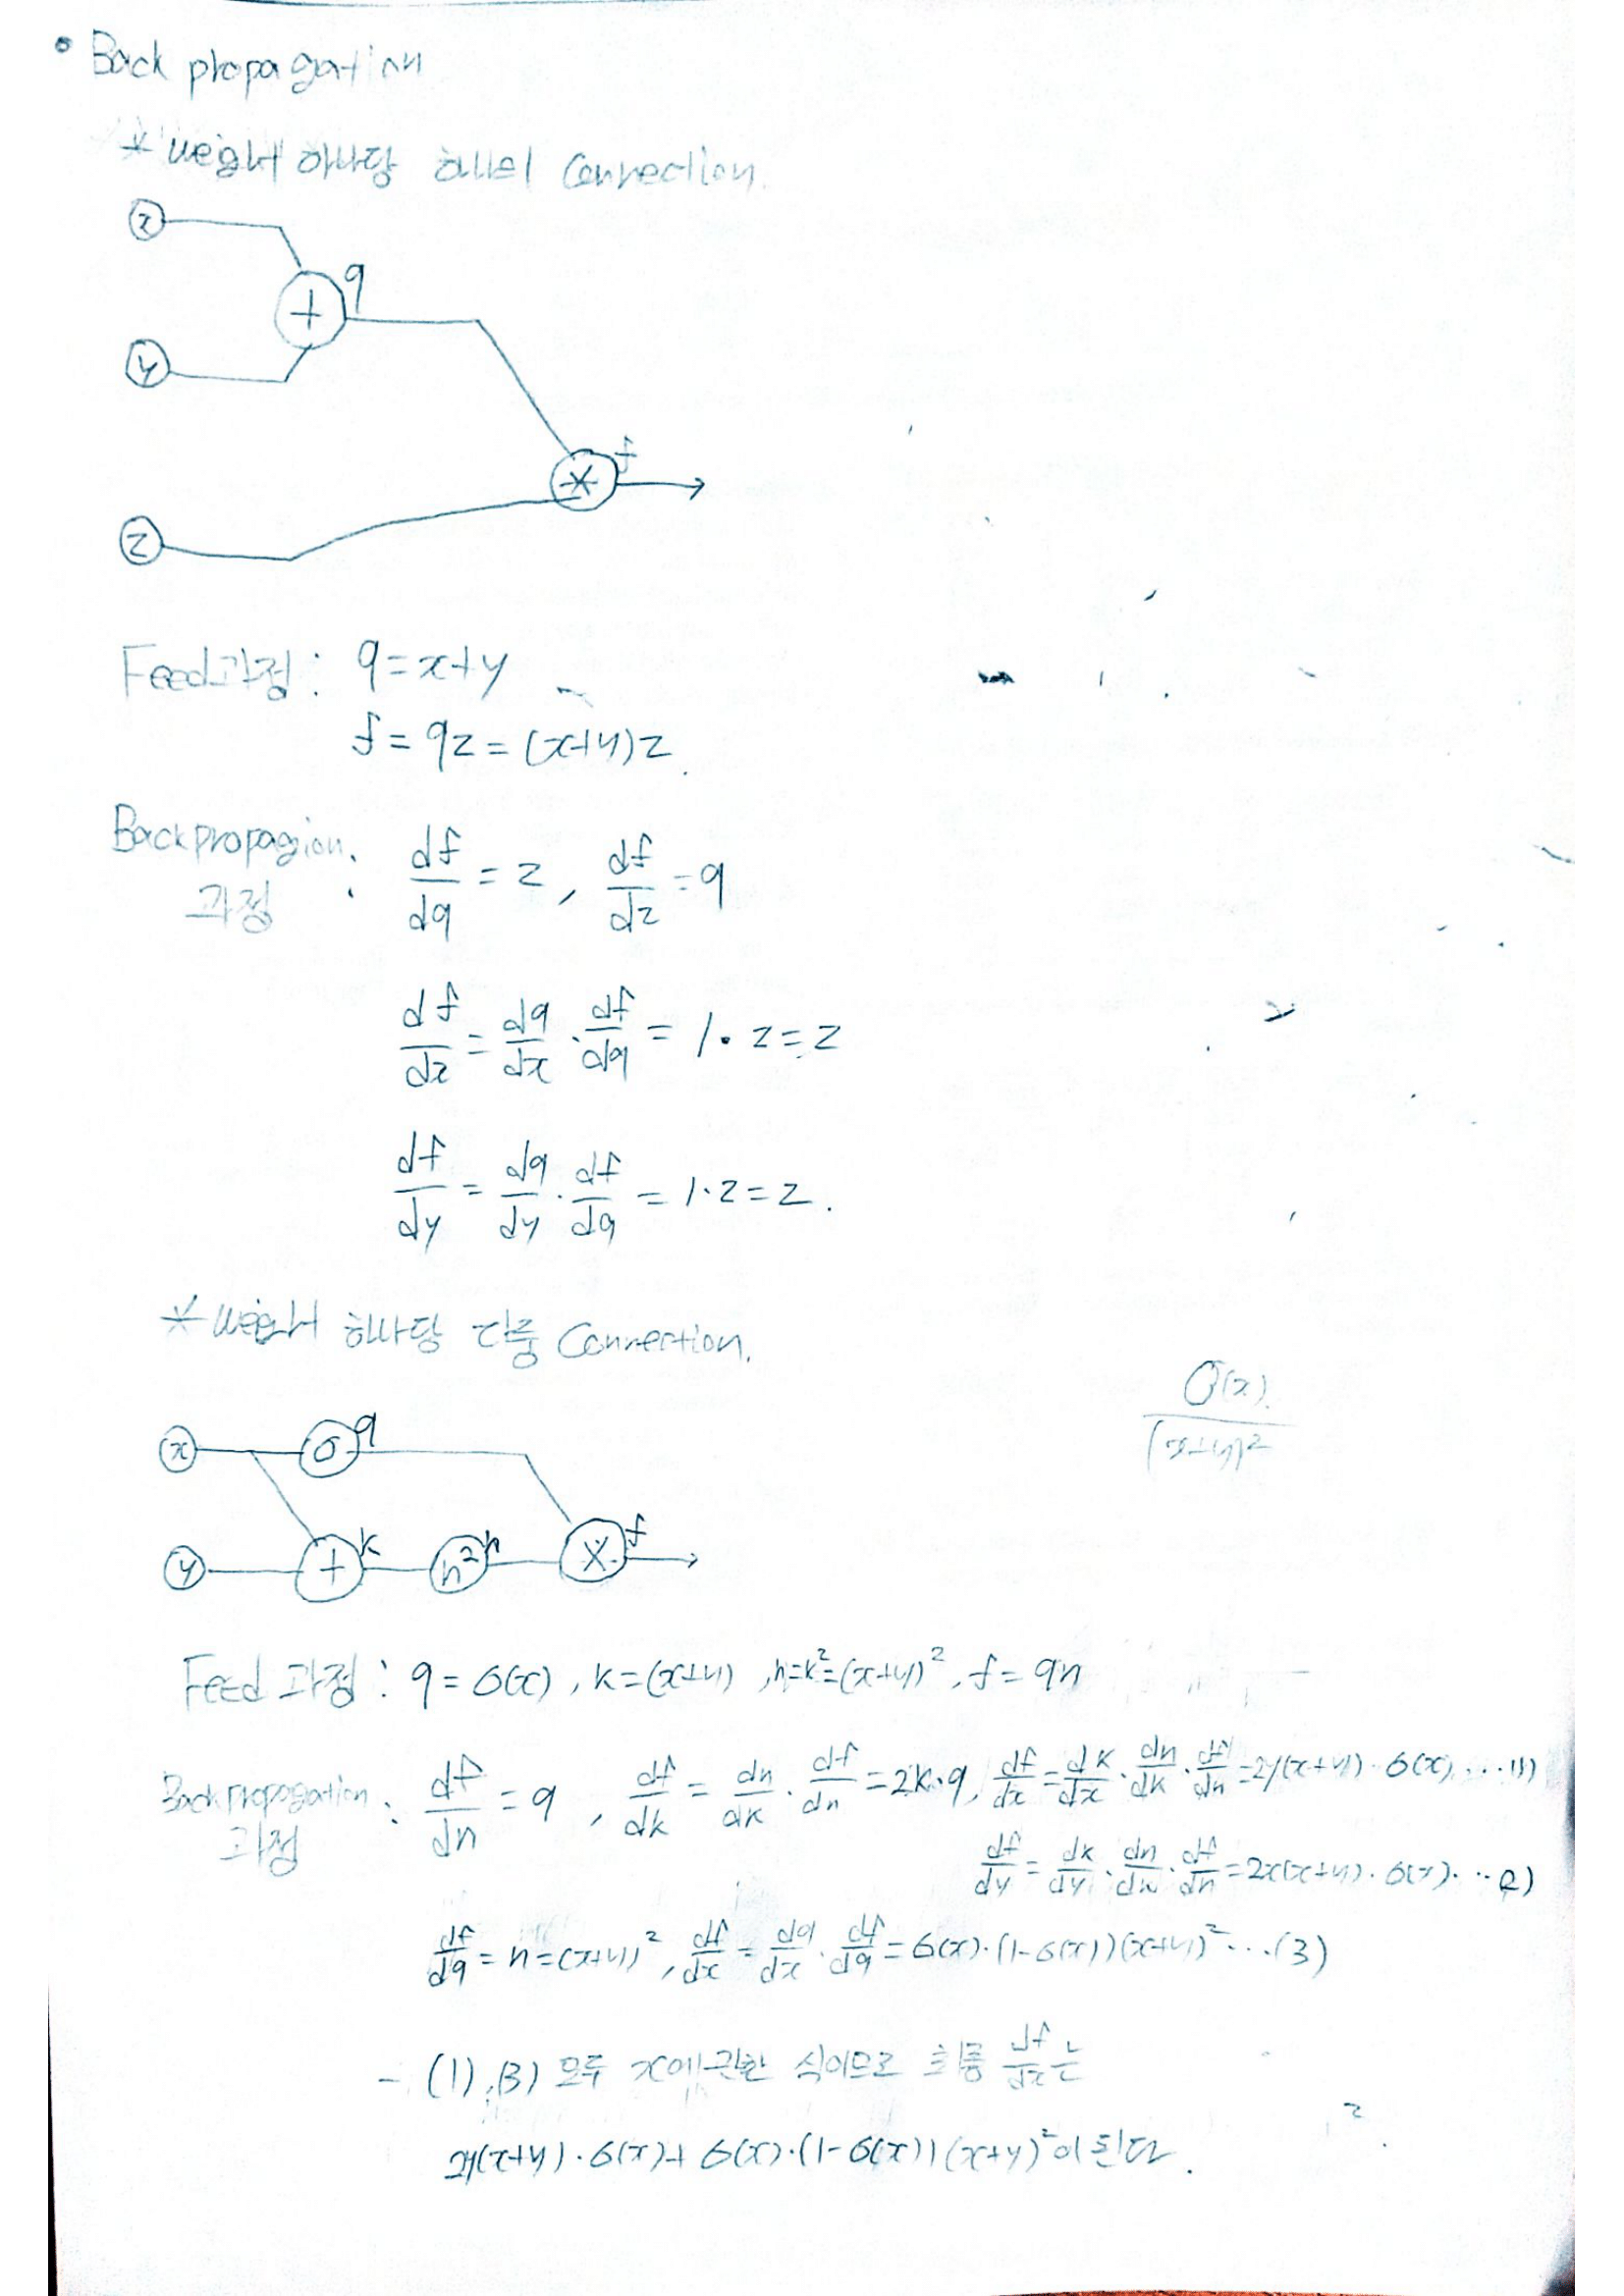 • Back propagation
* weight 하나당 하나의 Connection.
x
q
+
y
f
*
z
Feed과정 : q=x+y
f = qz = (x+y)z.
Backpropagion 과정 : df/dq = z, df/dz = q
df/dx = dq/dx · df/dq = 1·z=z
df/dy = dq/dy · df/dq = 1·z=z.
* weight 하나당 다중 Connection.
σ(x)/(x+y)²
x σ q
y + k n² n X f
Feed 과정 : q = σ(x), k=(x+y), n=k²=(x+y)², f= qn
Backpropagation 과정 : df/dn = q, df/dk = dn/dk · df/dn = 2k·q, df/dx = dk/dx · dn/dk · df/dn = 2y(x+y)·σ(x) ...(1)
df/dy = dk/dy · dn/dk · df/dn = 2x(x+y)·σ(x)...(2)
df/dq = n = (x+y)², df/dx = dq/dx · df/dq = σ(x)·(1-σ(x))(x+y)² ...(3)
- (1),(3) 모두 x에 관한 식이므로 최종 df/dx는
2y(x+y)·σ(x)+ σ(x)·(1-σ(x))(x+y)²이 된다.